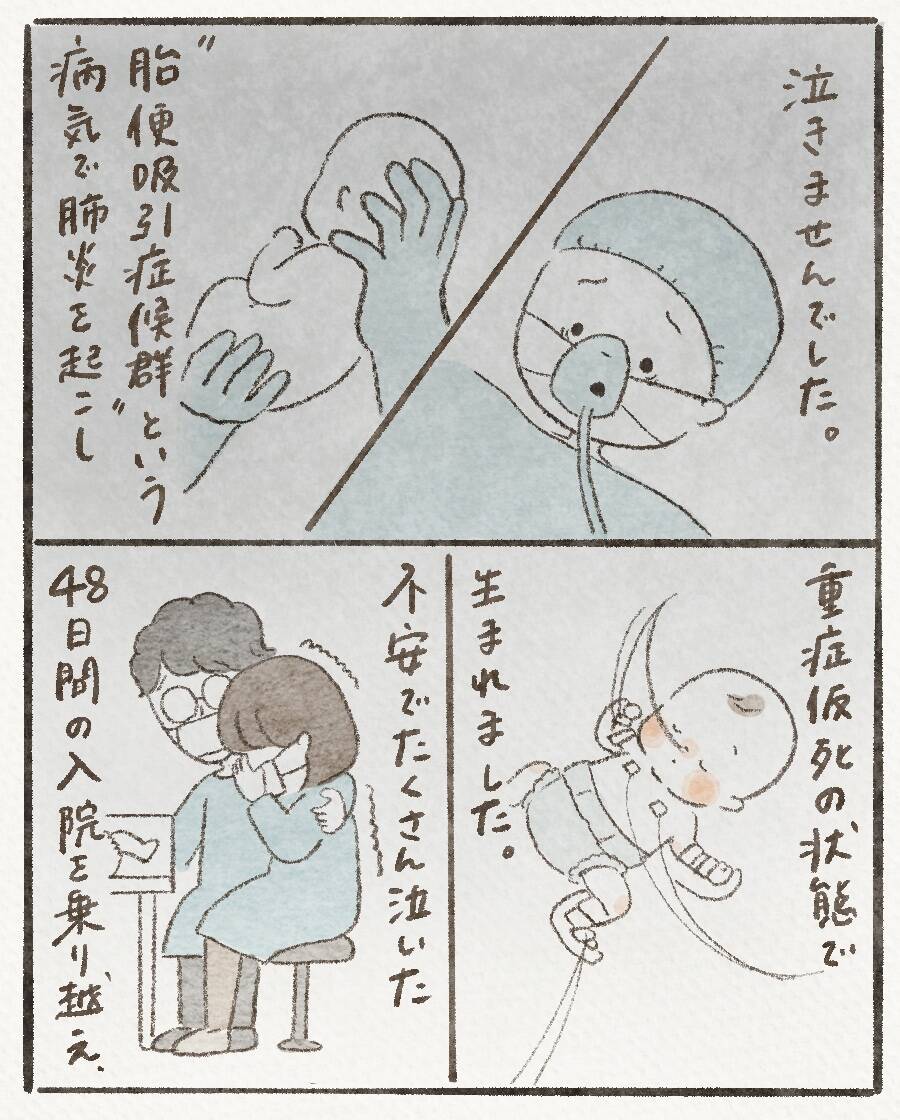 泣きませんでした。
“胎便吸引症候群という
病気で肺炎を起こ”し
重症仮死の状態で
生まれました。
不安でたくさん泣いた
48日間の入院を乗り越え、